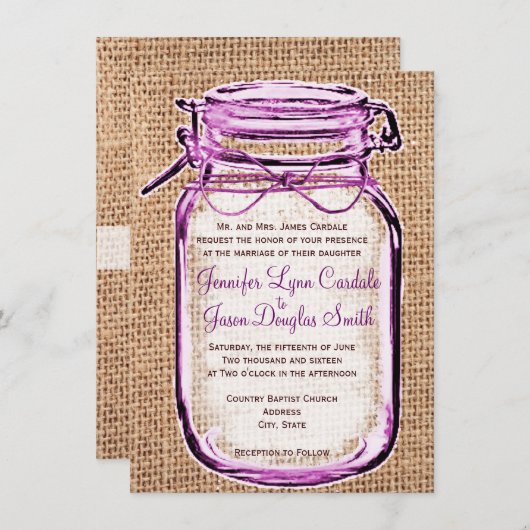 Mr. and Mrs. James Cardale
request the honor of your presence
at the marriage of their daughter
Jennifer Lynn Cardale
to
Jason Douglas Smith
Saturday, the fifteenth of June
Two thousand and sixteen
at Two o'clock in the afternoon
Country Baptist Church
Address
City, State
Reception to Follow